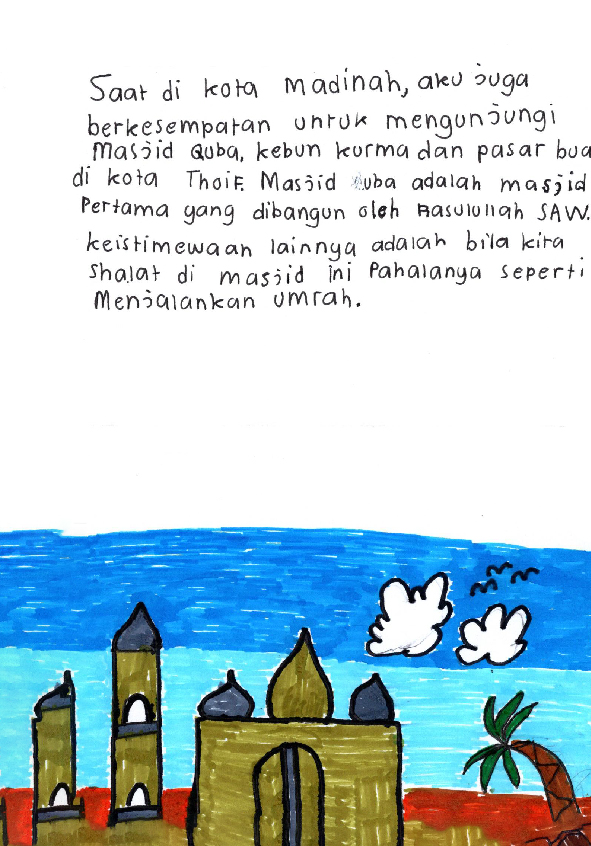 Saat di kota Madinah, aku juga
berkesempatan untuk mengunjungi
Masjid Quba, kebun kurma dan pasar bua
di kota Thoif. Masjid Quba adalah masjid
Pertama yang dibangun oleh Rasulullah SAW.
keistimewaan lainnya adalah bila kita
shalat di masjid ini Pahalanya seperti
Menjalankan umrah.